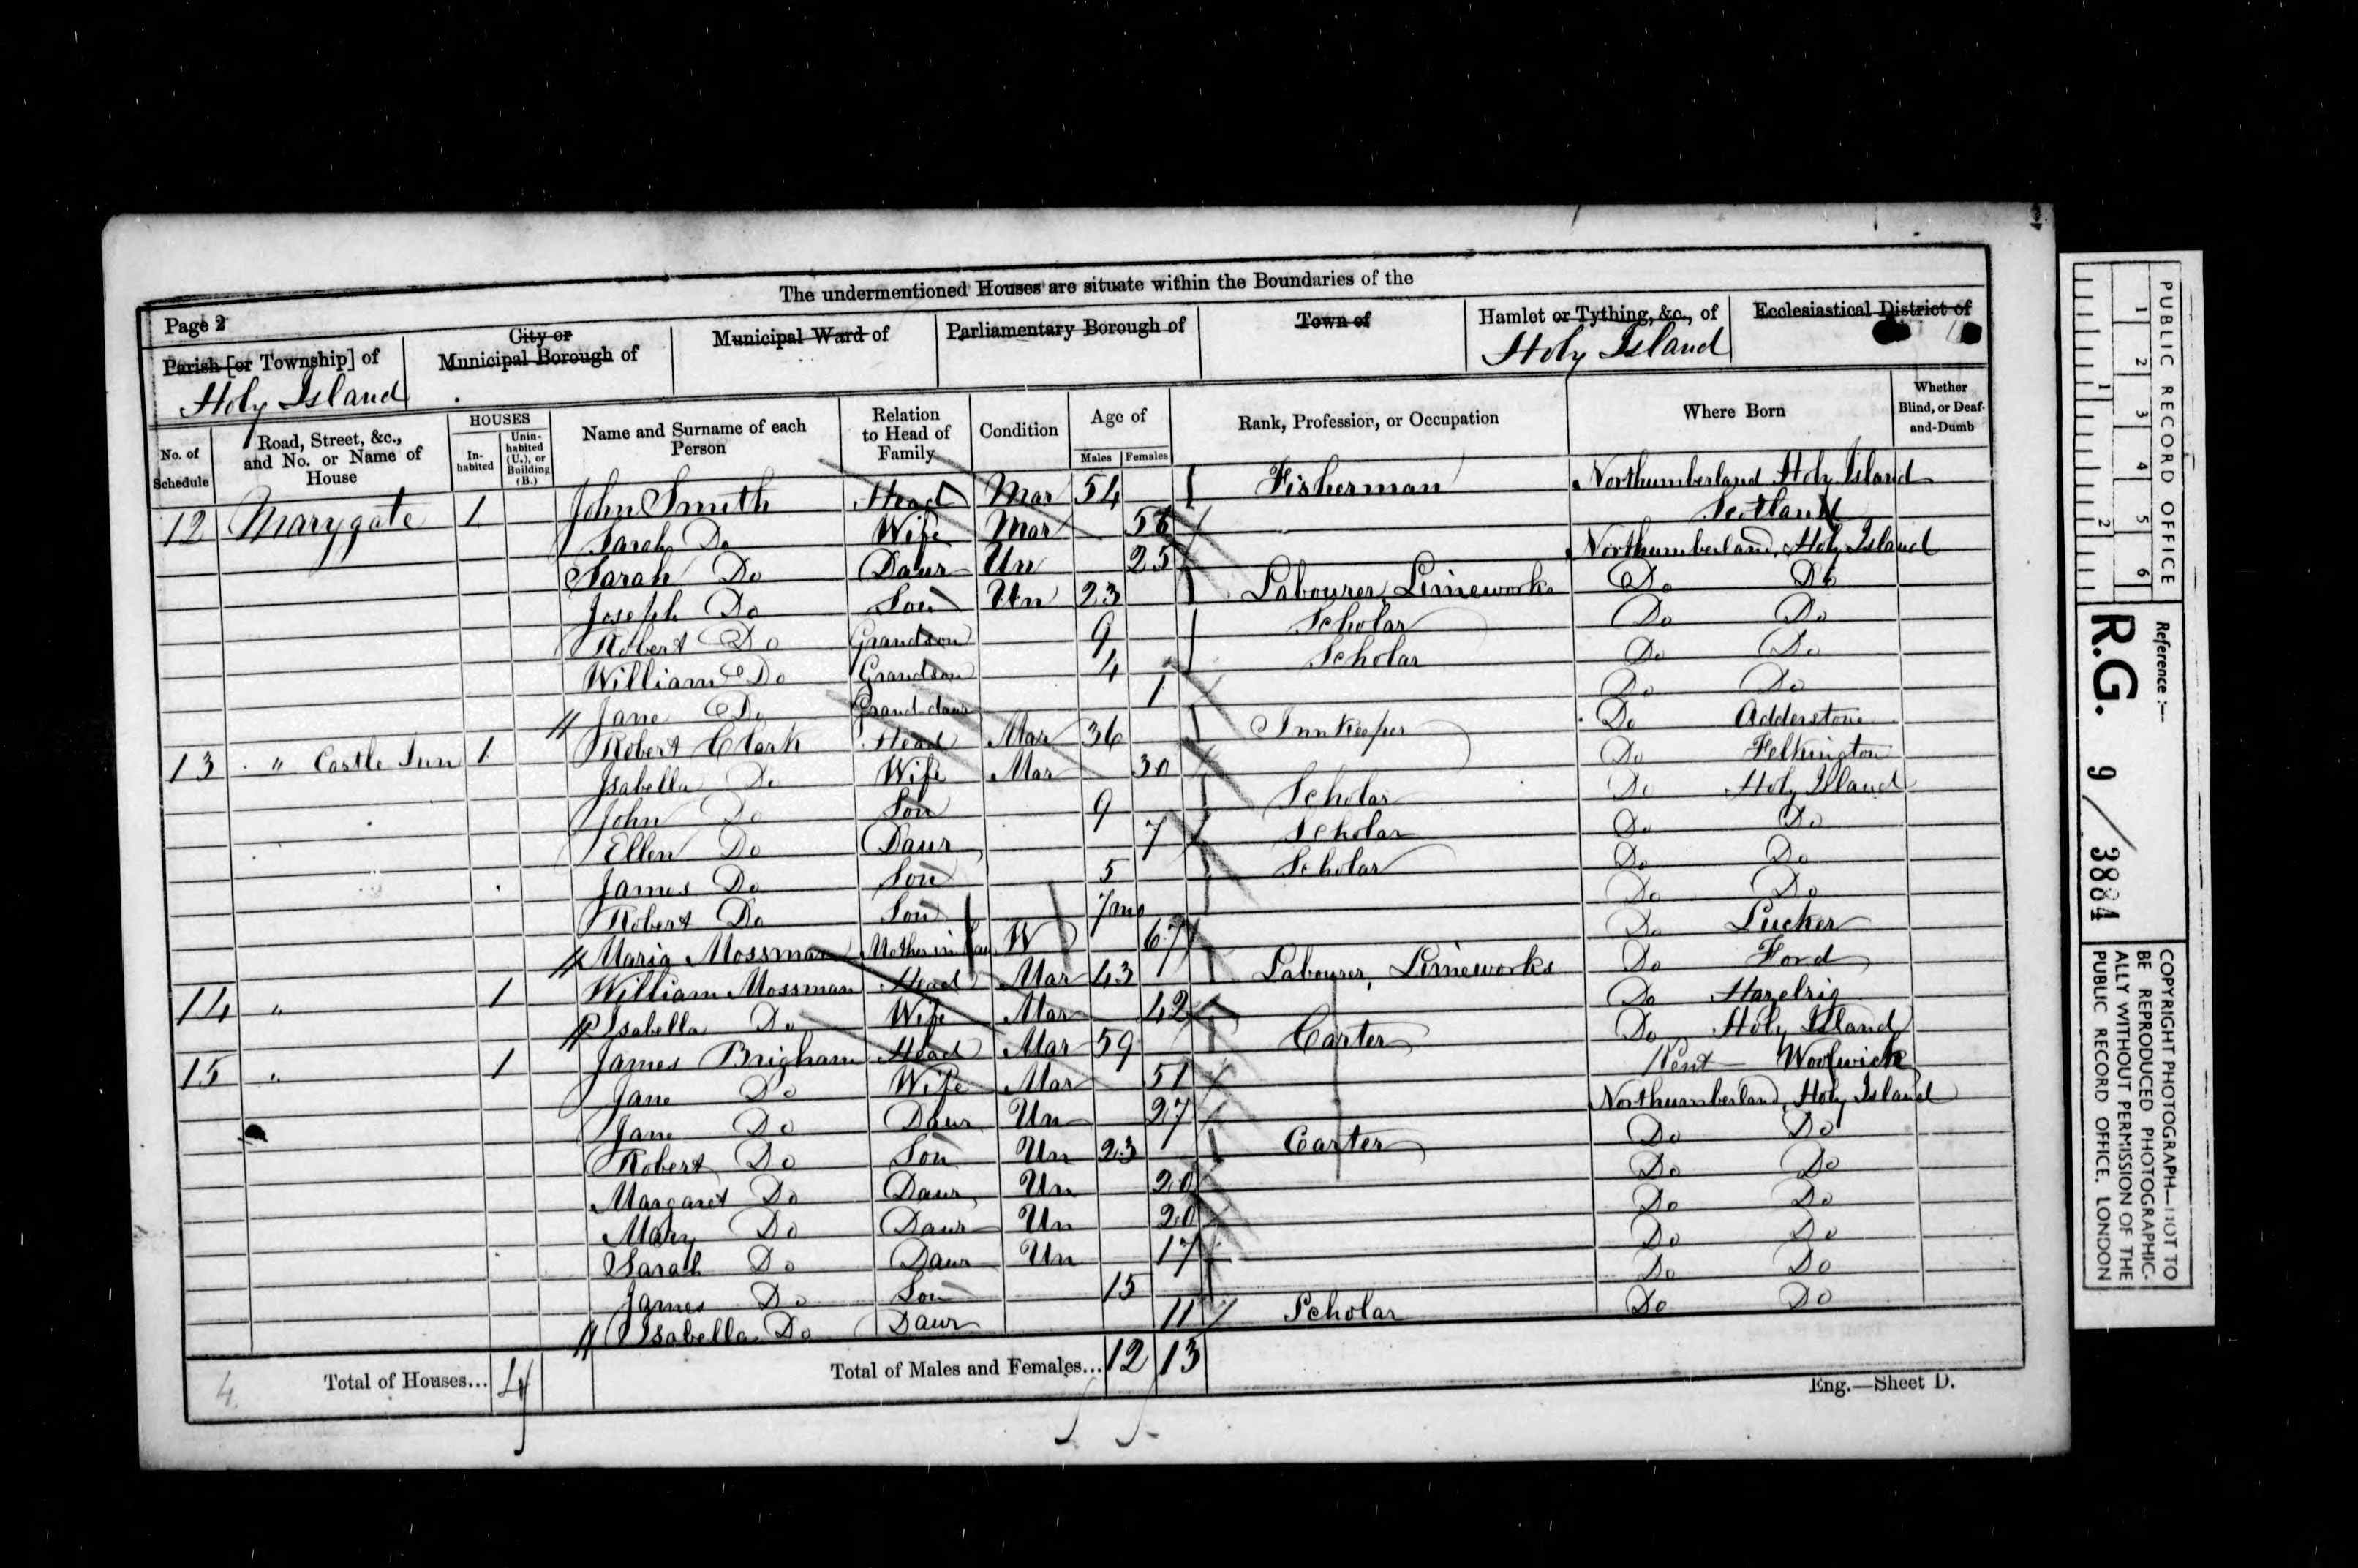 The undermentioned Houses are situate within the Boundaries of the
Page 2
Parish [or Township] of
Holy Island
City or
Municipal Borough of
Municipal Ward of
Parliamentary Borough of
Town of
Hamlet or Tything, &c., of
Holy Island
Ecclesiastical District of
No. of Schedule
Road, Street, &c., and No. or Name of House
HOUSES
Inhabited
Uninhabited (U.), or Building (B.)
Name and Surname of each Person
Relation to Head of Family
Condition
Age of
Males Females
Rank, Profession, or Occupation
Where Born
Whether Blind, or Deaf-and-Dumb
12 Marygate 1 John Smith Head Mar 54 Fisherman Northumberland Holy Island
Sarah Do Wife Mar 56 Scotland
Sarah Do Daur Un 25 Northumberland, Holy Island
Joseph Do Son Un 23 Labourer, Limeworks Do Do
Robert Do Grandson 9 Scholar Do Do
William Do Grandson 4 Scholar Do Do
Jane Do Grand-daur 1 Do Do
13 " Castle Inn 1 Robert Clark Head Mar 36 Innkeeper Do Adderstone
Isabella Do Wife Mar 30 Do Felkington
John Do Son 9 Scholar Do Holy Island
Ellen Do Daur 7 Scholar Do Do
James Do Son 5 Scholar Do Do
Robert Do Son 7mo Do Do
Maria Mossman Mother in law W 67 Do Lucker
14 " 1 William Mossman Head Mar 43 Labourer, Limeworks Do Ford
Isabella Do Wife Mar 42 Do Hazelrig
15 " 1 James Brigham Head Mar 59 Carter Do Holy Island
Jane Do Wife Mar 51 Kent Woolwich
Jane Do Daur Un 27 Northumberland, Holy Island
Robert Do Son Un 23 Carter Do Do
Margaret Do Daur Un 20 Do Do
Mary Do Daur Un 20 Do Do
Sarah Do Daur Un 17 Do Do
James Do Son 15 Do Do
Isabella Do Daur 11 Scholar Do Do
4 Total of Houses... 4 Total of Males and Females... 12 13
Eng.—Sheet D.
PUBLIC RECORD OFFICE
1 2 3 4 5 6
1 2
Reference :—
R.G. 9/3884
COPYRIGHT PHOTOGRAPH—NOT TO
BE REPRODUCED PHOTOGRAPHIC-
ALLY WITHOUT PERMISSION OF THE
PUBLIC RECORD OFFICE, LONDON